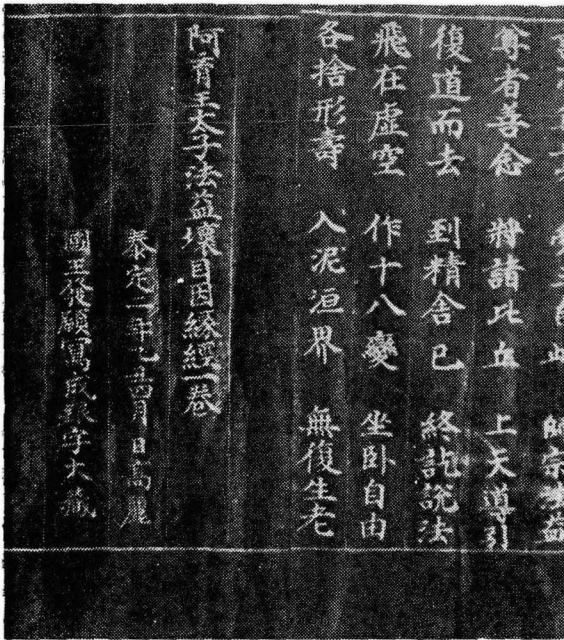 師宗法益
尊者善念 將諸比丘 上天導引
復道而去 到精舍已 終訖說法
飛在虛空 作十八變 坐卧自由
各捨形壽 入泥洹界 無復生老
阿育王太子法益壞目因緣經一卷
泰定二年乙丑四月日高麗
國王發願寫成銀字大藏